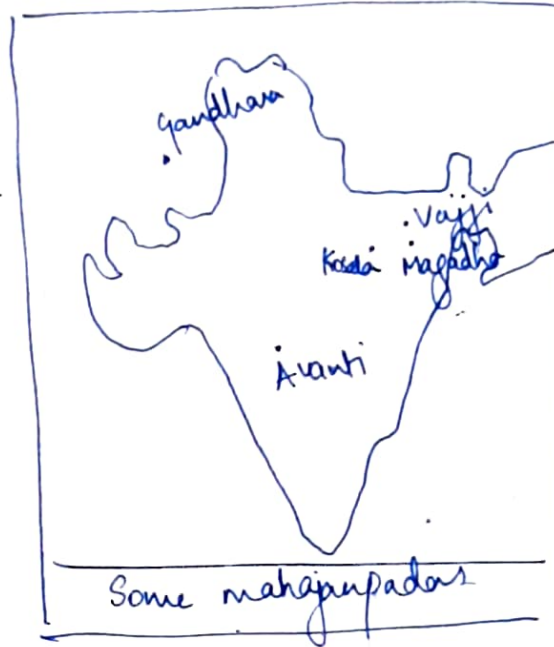 Gandhara
Vajji
Kosala Magadha
Avanti
Some mahajanpadas